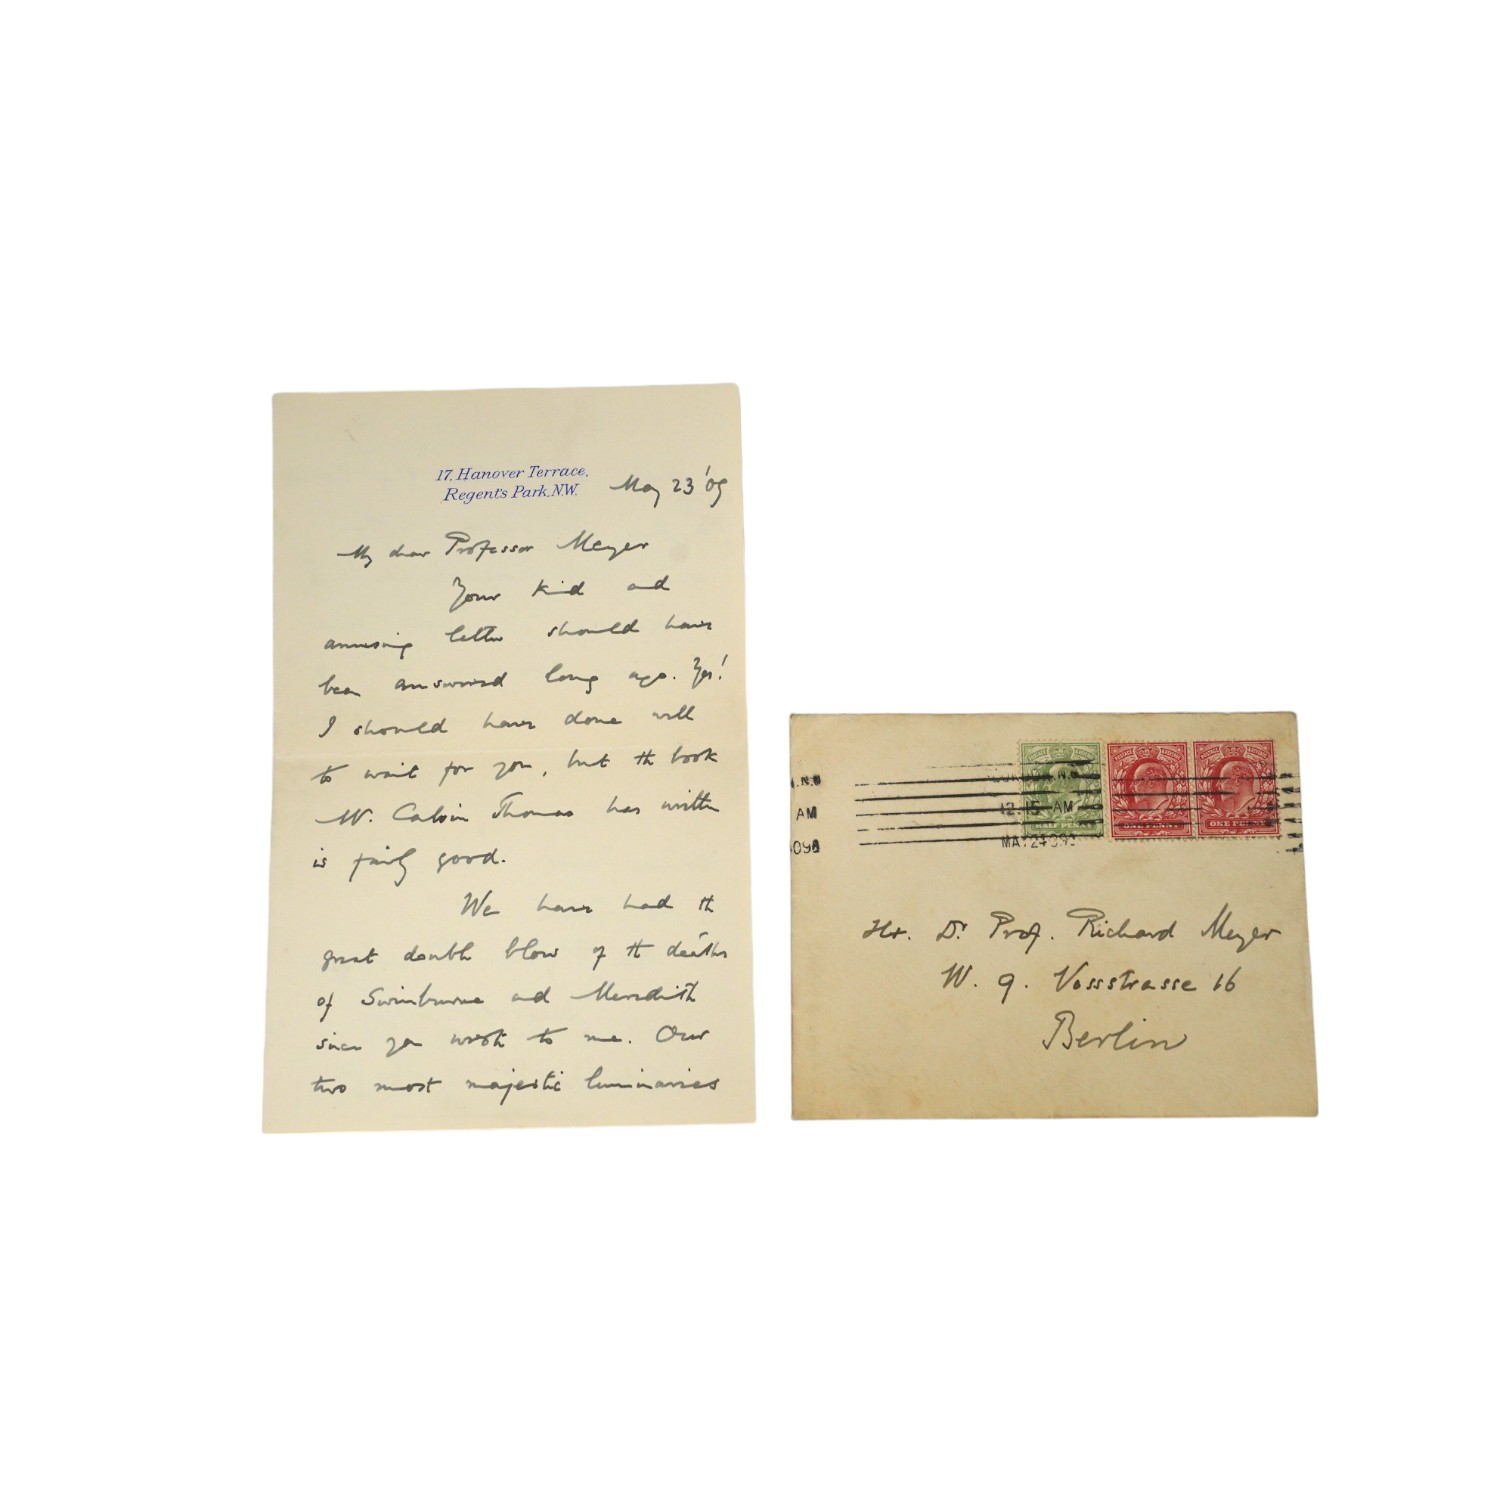 17, Hanover Terrace,
Regent's Park, N.W.
May 23 '09
My dear Professor Meyer
Your kind and
amusing letter should have
been answered long ago. Yes!
I should have done well
to wait for you, but the book
Mr. Calvin Thomas has written
is fairly good.
We have had the
great double blow of the deaths
of Swinburne and Meredith
since you wrote to me. Our
two most majestic luminaries
.N.W
AM
LONDON. N.W
12.15 AM
MAY 24 09
HALF PENNY
ONE PENNY
ONE PENNY
Hr. Dr Prof. Richard Meyer
W. 9. Vossstrasse 16
Berlin